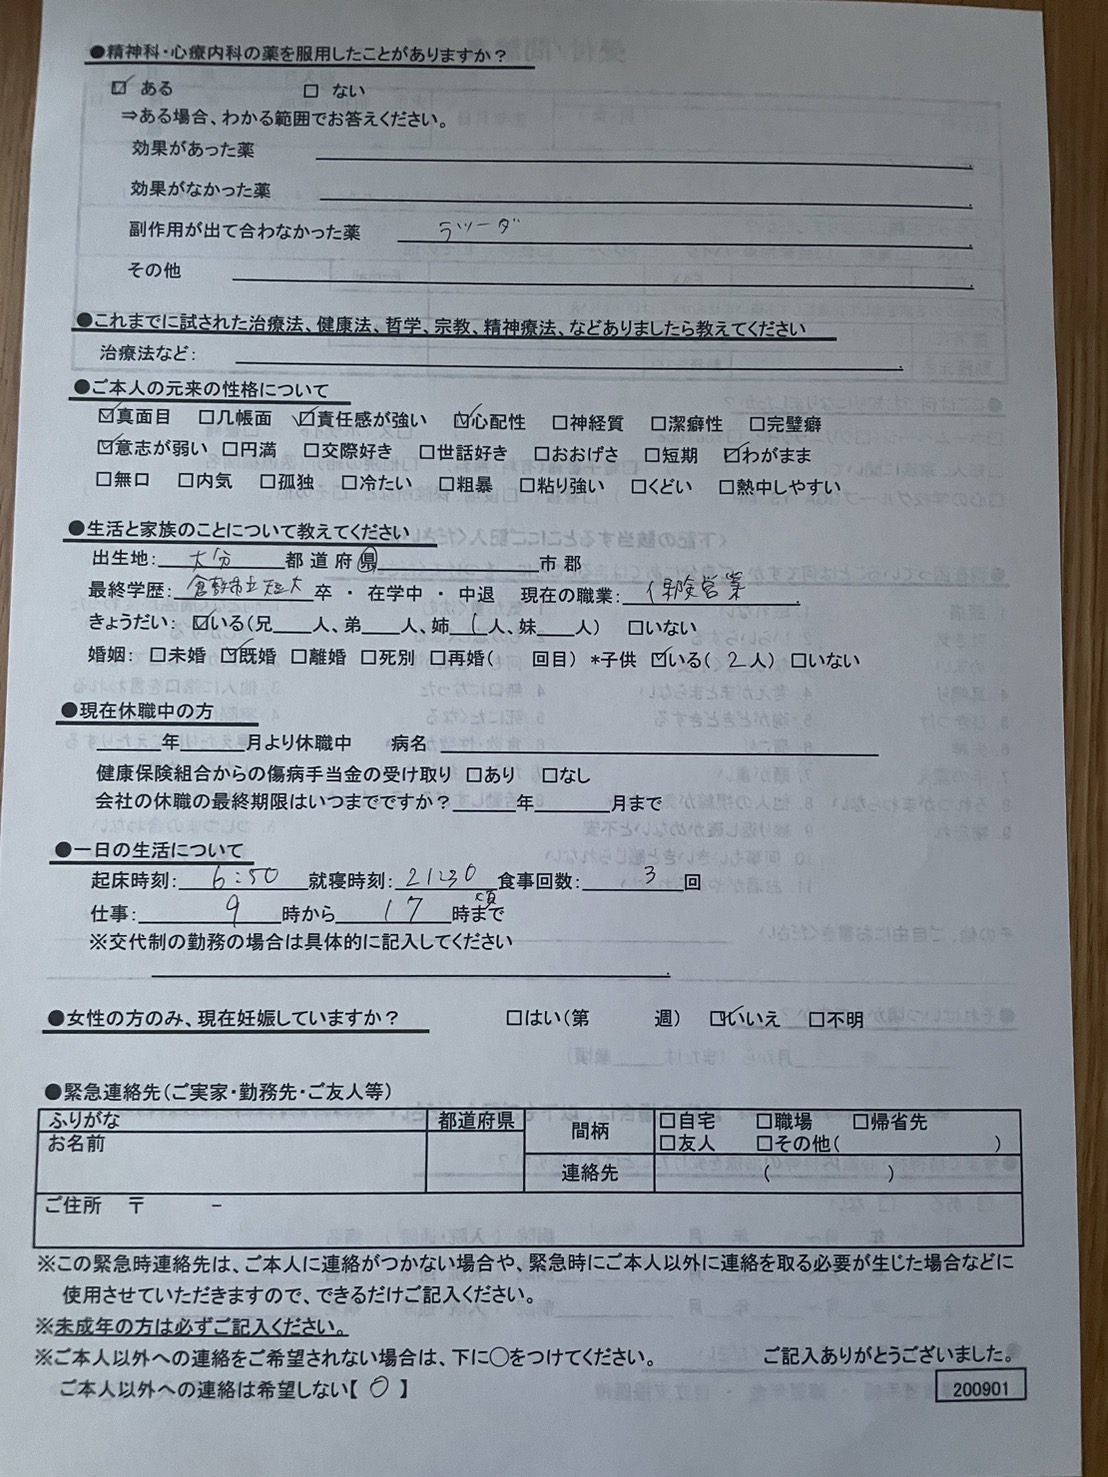 ●精神科・心療内科の薬を服用したことがありますか？
☑ ある　□ ない
⇒ある場合、わかる範囲でお答えください。
効果があった薬
効果がなかった薬
副作用が出て合わなかった薬　ラツーダ
その他
●これまでに試された治療法、健康法、哲学、宗教、精神療法、などありましたら教えてください
治療法など：
●ご本人の元来の性格について
☑真面目　□几帳面　☑責任感が強い　☑心配性　□神経質　□潔癖性　□完璧癖
☑意志が弱い　□円満　□交際好き　□世話好き　□おおげさ　□短期　☑わがまま
□無口　□内気　□孤独　□冷たい　□粗暴　□粘り強い　□くどい　□熱中しやすい
●生活と家族のことについて教えてください
出生地：大分　都 道 府 県　市 郡
最終学歴：倉敷市立短大　卒 ・ 在学中 ・ 中退　現在の職業：保険営業
きょうだい：☑いる（兄　人、弟　人、姉 1 人、妹　人）　□いない
婚姻：□未婚　☑既婚　□離婚　□死別　□再婚（　回目）　*子供　☑いる（ 2 人）　□いない
●現在休職中の方
年　月より休職中　病名
健康保険組合からの傷病手当金の受け取り　□あり　□なし
会社の休職の最終期限はいつまでですか？　年　月まで
●一日の生活について
起床時刻： 6:50　就寝時刻： 21:30　食事回数： 3 回
仕事： 9 時から 17 時頃まで
※交代制の勤務の場合は具体的に記入してください
●女性の方のみ、現在妊娠していますか？　□はい（第　週）　☑いいえ　□不明
●緊急連絡先（ご実家・勤務先・ご友人等）
ふりがな　都道府県　間柄　□自宅　□職場　□帰省先
お名前　□友人　□その他（　）
連絡先　（　）
ご住所　〒　－
※この緊急時連絡先は、ご本人に連絡がつかない場合や、緊急時にご本人以外に連絡を取る必要が生じた場合などに
使用させていただきますので、できるだけご記入ください。
※未成年の方は必ずご記入ください。
※ご本人以外への連絡をご希望されない場合は、下に○をつけてください。　ご記入ありがとうございました。
ご本人以外への連絡は希望しない【 ○ 】　200901